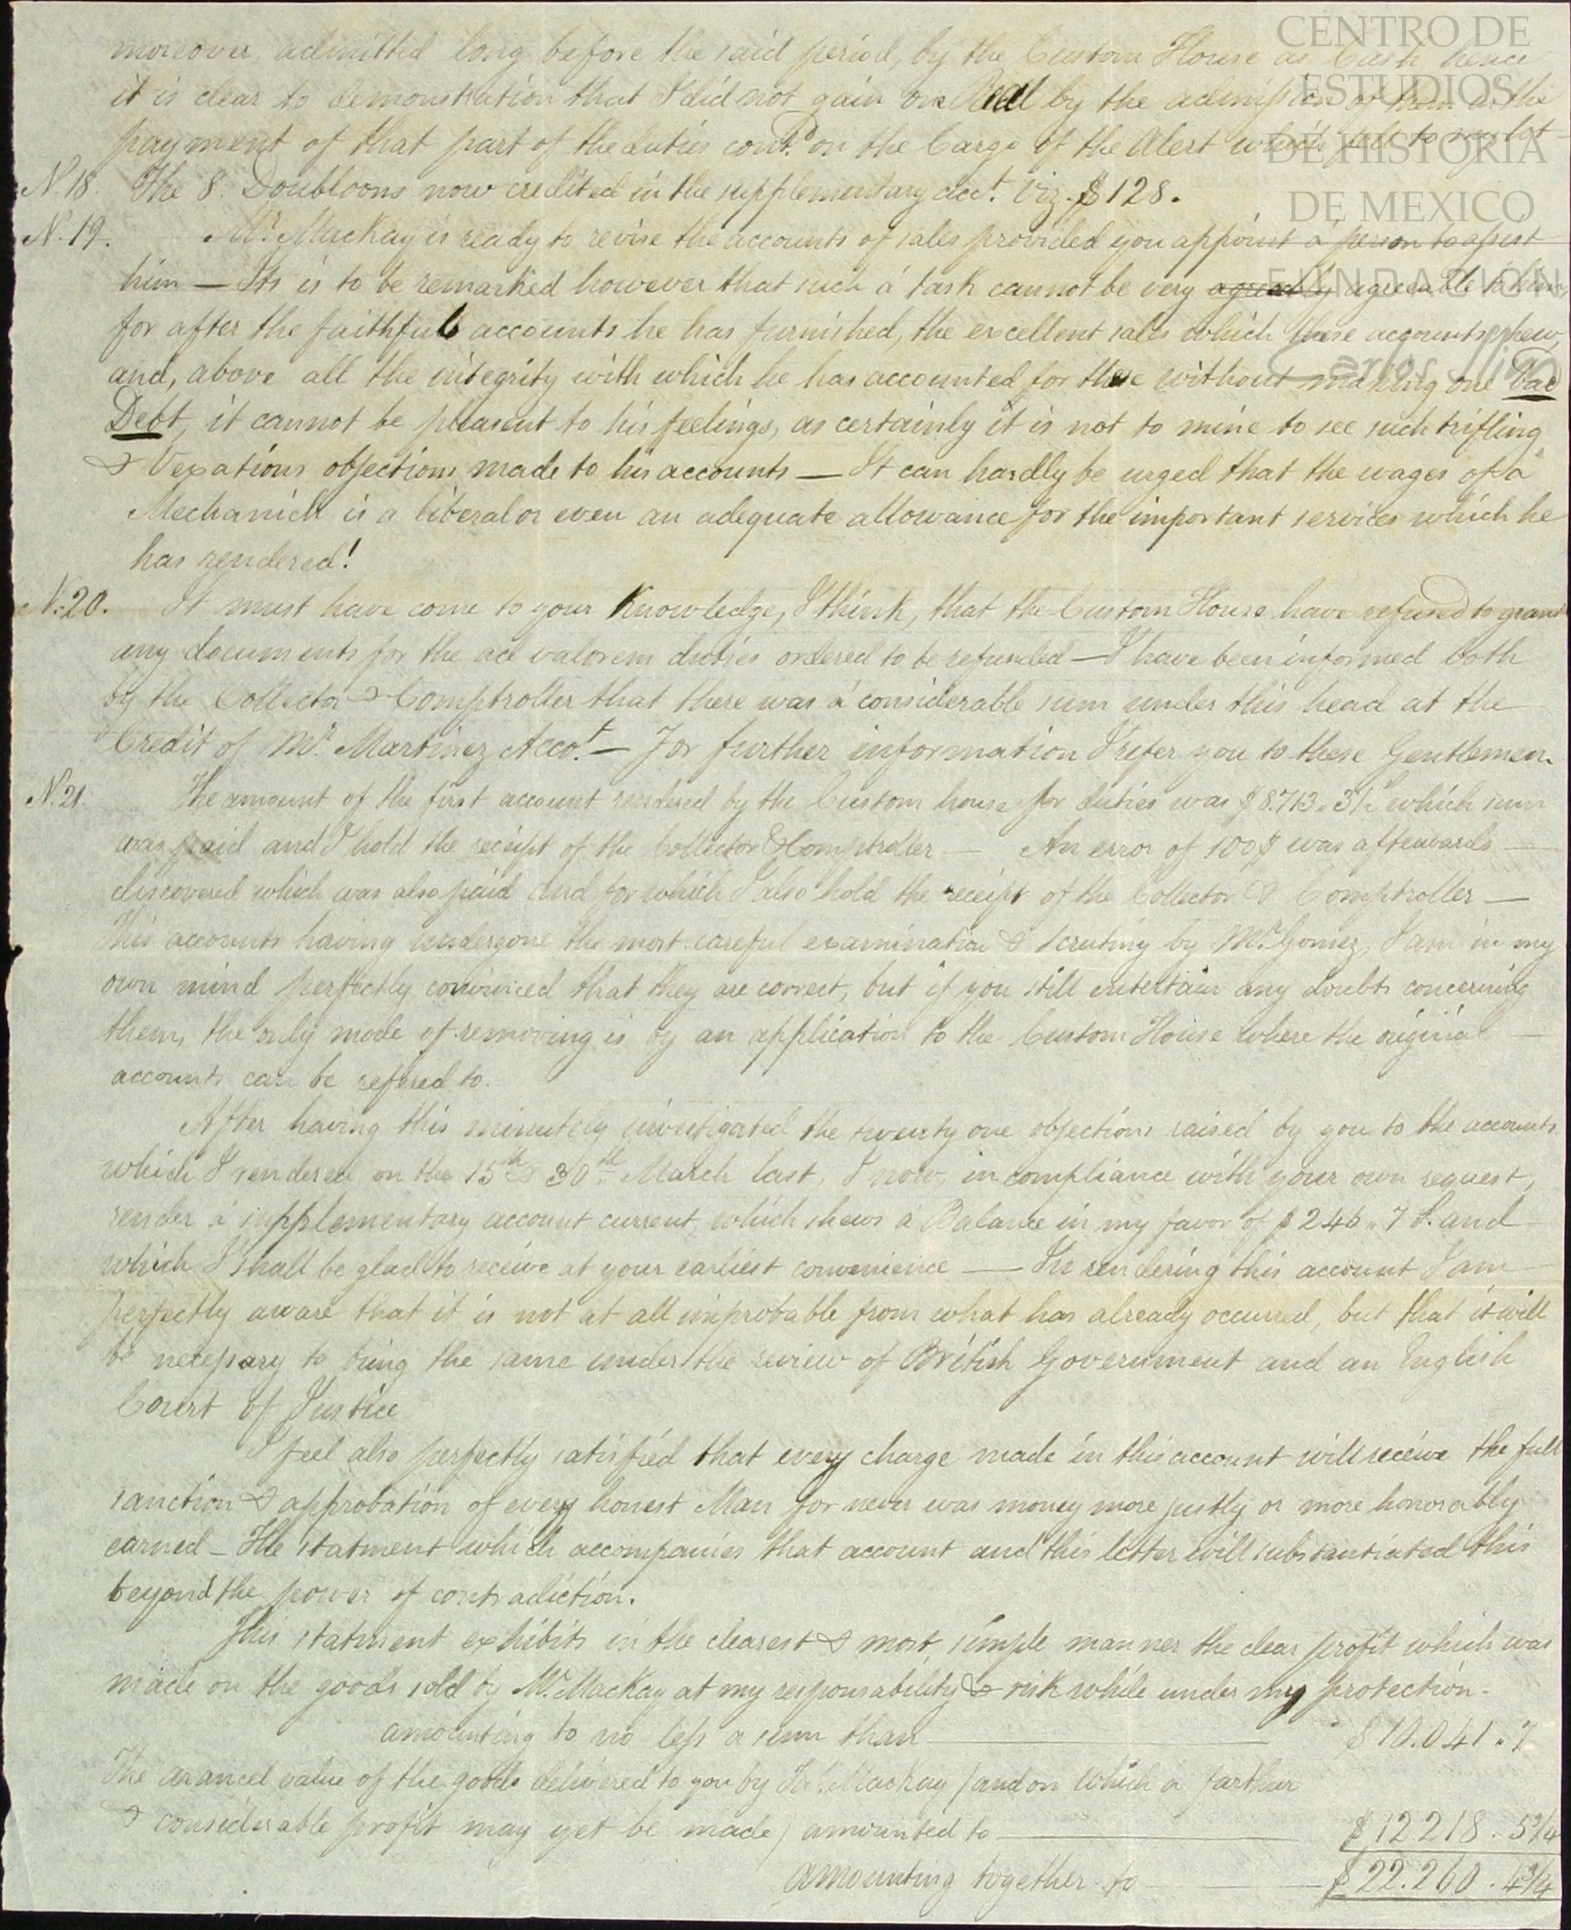 CENTRO DE
ESTUDIOS
DE HISTORIA
DE MEXICO
FUNDACIÓN
Carlos Slim
moreover, admitted long before the said period, by the Custom House as Cash, hence
it is clear to demonstration that I did not gain one Real by the admission of them in the
payment of that part of the duties cont.d on the Cargo of the Alert which fell to my lot
N. 18. The 8 Doubloons now credited in the supplementary acc.t Viz. $128.
N. 19. Mr. MacKay is ready to revise the accounts of sales provided you appoint a person to assist
him — It is to be remarked however that such a task cannot be very agreeable to him,
for after the faithful accounts he has furnished, the excellent sales which these accounts shew,
and, above all the integrity with which he has accounted for these without making one Bad
Debt, it cannot be pleasent to his feelings, as certainly it is not to mine to see such trifling
& Vexations objections made to his accounts — It can hardly be urged that the wages of a
Mechanick is a liberal or even an adequate allowance for the important services which he
has rendered!
N. 20. It must have come to your Knowledge, I think, that the Custom House have refused to grant
any documents for the ad valorem duties ordered to be refunded — I have been informed both
by the Collector & Comptroller that there was a considerable sum under this head at the
Credit of Mr. Martinez Acco.t — For further information I refer you to these Gentlemen.
N. 21. The amount of the first account rendered by the Custom house for duties was $8.713.3½ which sum
was paid and I hold the receipt of the Collector & Comptroller — An error of 100$ was afterwards —
discovered which was also paid and for which I also hold the receipt of the Collector & Comptroller —
This accounts having undergone the most careful examination & scrutiny by Mr. Gomez, I am in my
own mind perfectly convinced that they are correct, but if you still entertain any doubts concerning
them, the only mode of removing is by an application to the Custom House where the original —
accounts can be refered to.
After having this minutely investigated the twenty one objections raised by you to the accounts
which I rendered on the 15th & 30th March last, I now, in compliance with your own request,
render a supplementary account current, which shews a Balance in my favor of $246.7 S. and
which I shall be glad to receive at your earliest convenience — In rendering this account I am
perfectly aware that it is not at all improbable from what has already occurred, but that it will
be necessary to bring the same under the review of British Government and an English
Court of Justice
I feel also perfectly satisfied that every charge made in this account will receive the full
sanction & approbation of every honest Man for never was money more justly or more honorably
earned — The statment which accompanies that account and this letter will substantiated this
beyond the power of contradiction.
This statment exhibits in the clearest & most simple manner the clear profit which was
made on the goods sold by Mr. MacKay at my responsability & risk while under my protection —
amounting to no less a sum than — $10.041.7
The arancel value of the goods delivered to you by Mackay / and on which a farther
& considerable profit may yet be made / amounted to — $12.218.5¾
amounting together to — $22.260.4¾